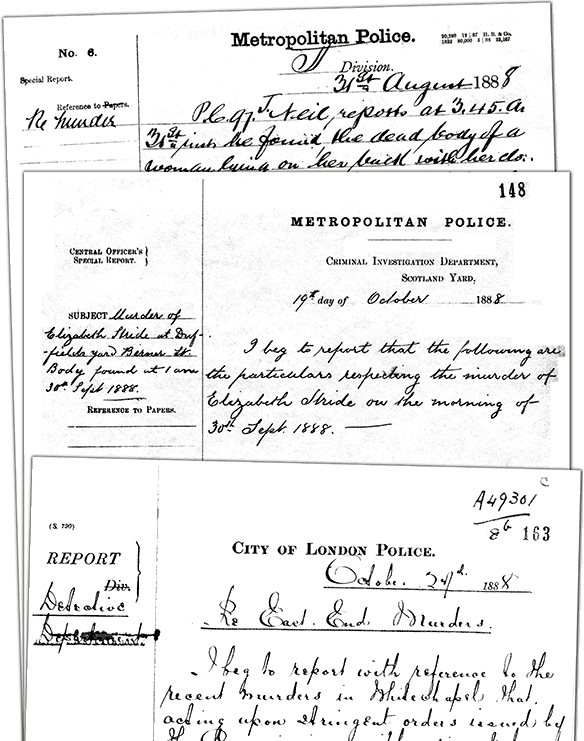 Metropolitan Police.
No. 6.
J Division.
Special Report.
31st August 1888
Reference to Papers.
Re Murder
P.C. 97J Neil, reports at 3.45. am
31st inst. he found the dead body of a
woman lying on her back with her clo:
148
METROPOLITAN POLICE.
CENTRAL OFFICER'S
SPECIAL REPORT.
CRIMINAL INVESTIGATION DEPARTMENT,
SCOTLAND YARD,
19th day of October 1888
SUBJECT Murder of
Elizabeth Stride at Duf-
fields yard Berner St
Body found at 1 am
30th Sept 1888.
REFERENCE TO PAPERS.
I beg to report that the following are
the particulars respecting the murder of
Elizabeth Stride on the morning of
30th Sept. 1888. —
C
A49301
8b
163
(S. 799)
REPORT
Div.
Detective
Department.
CITY OF LONDON POLICE.
Octobr. 27th. 1888
Re East End Murders.
I beg to report with reference to the
recent murders in Whitechapel that,
acting upon stringent orders issued by